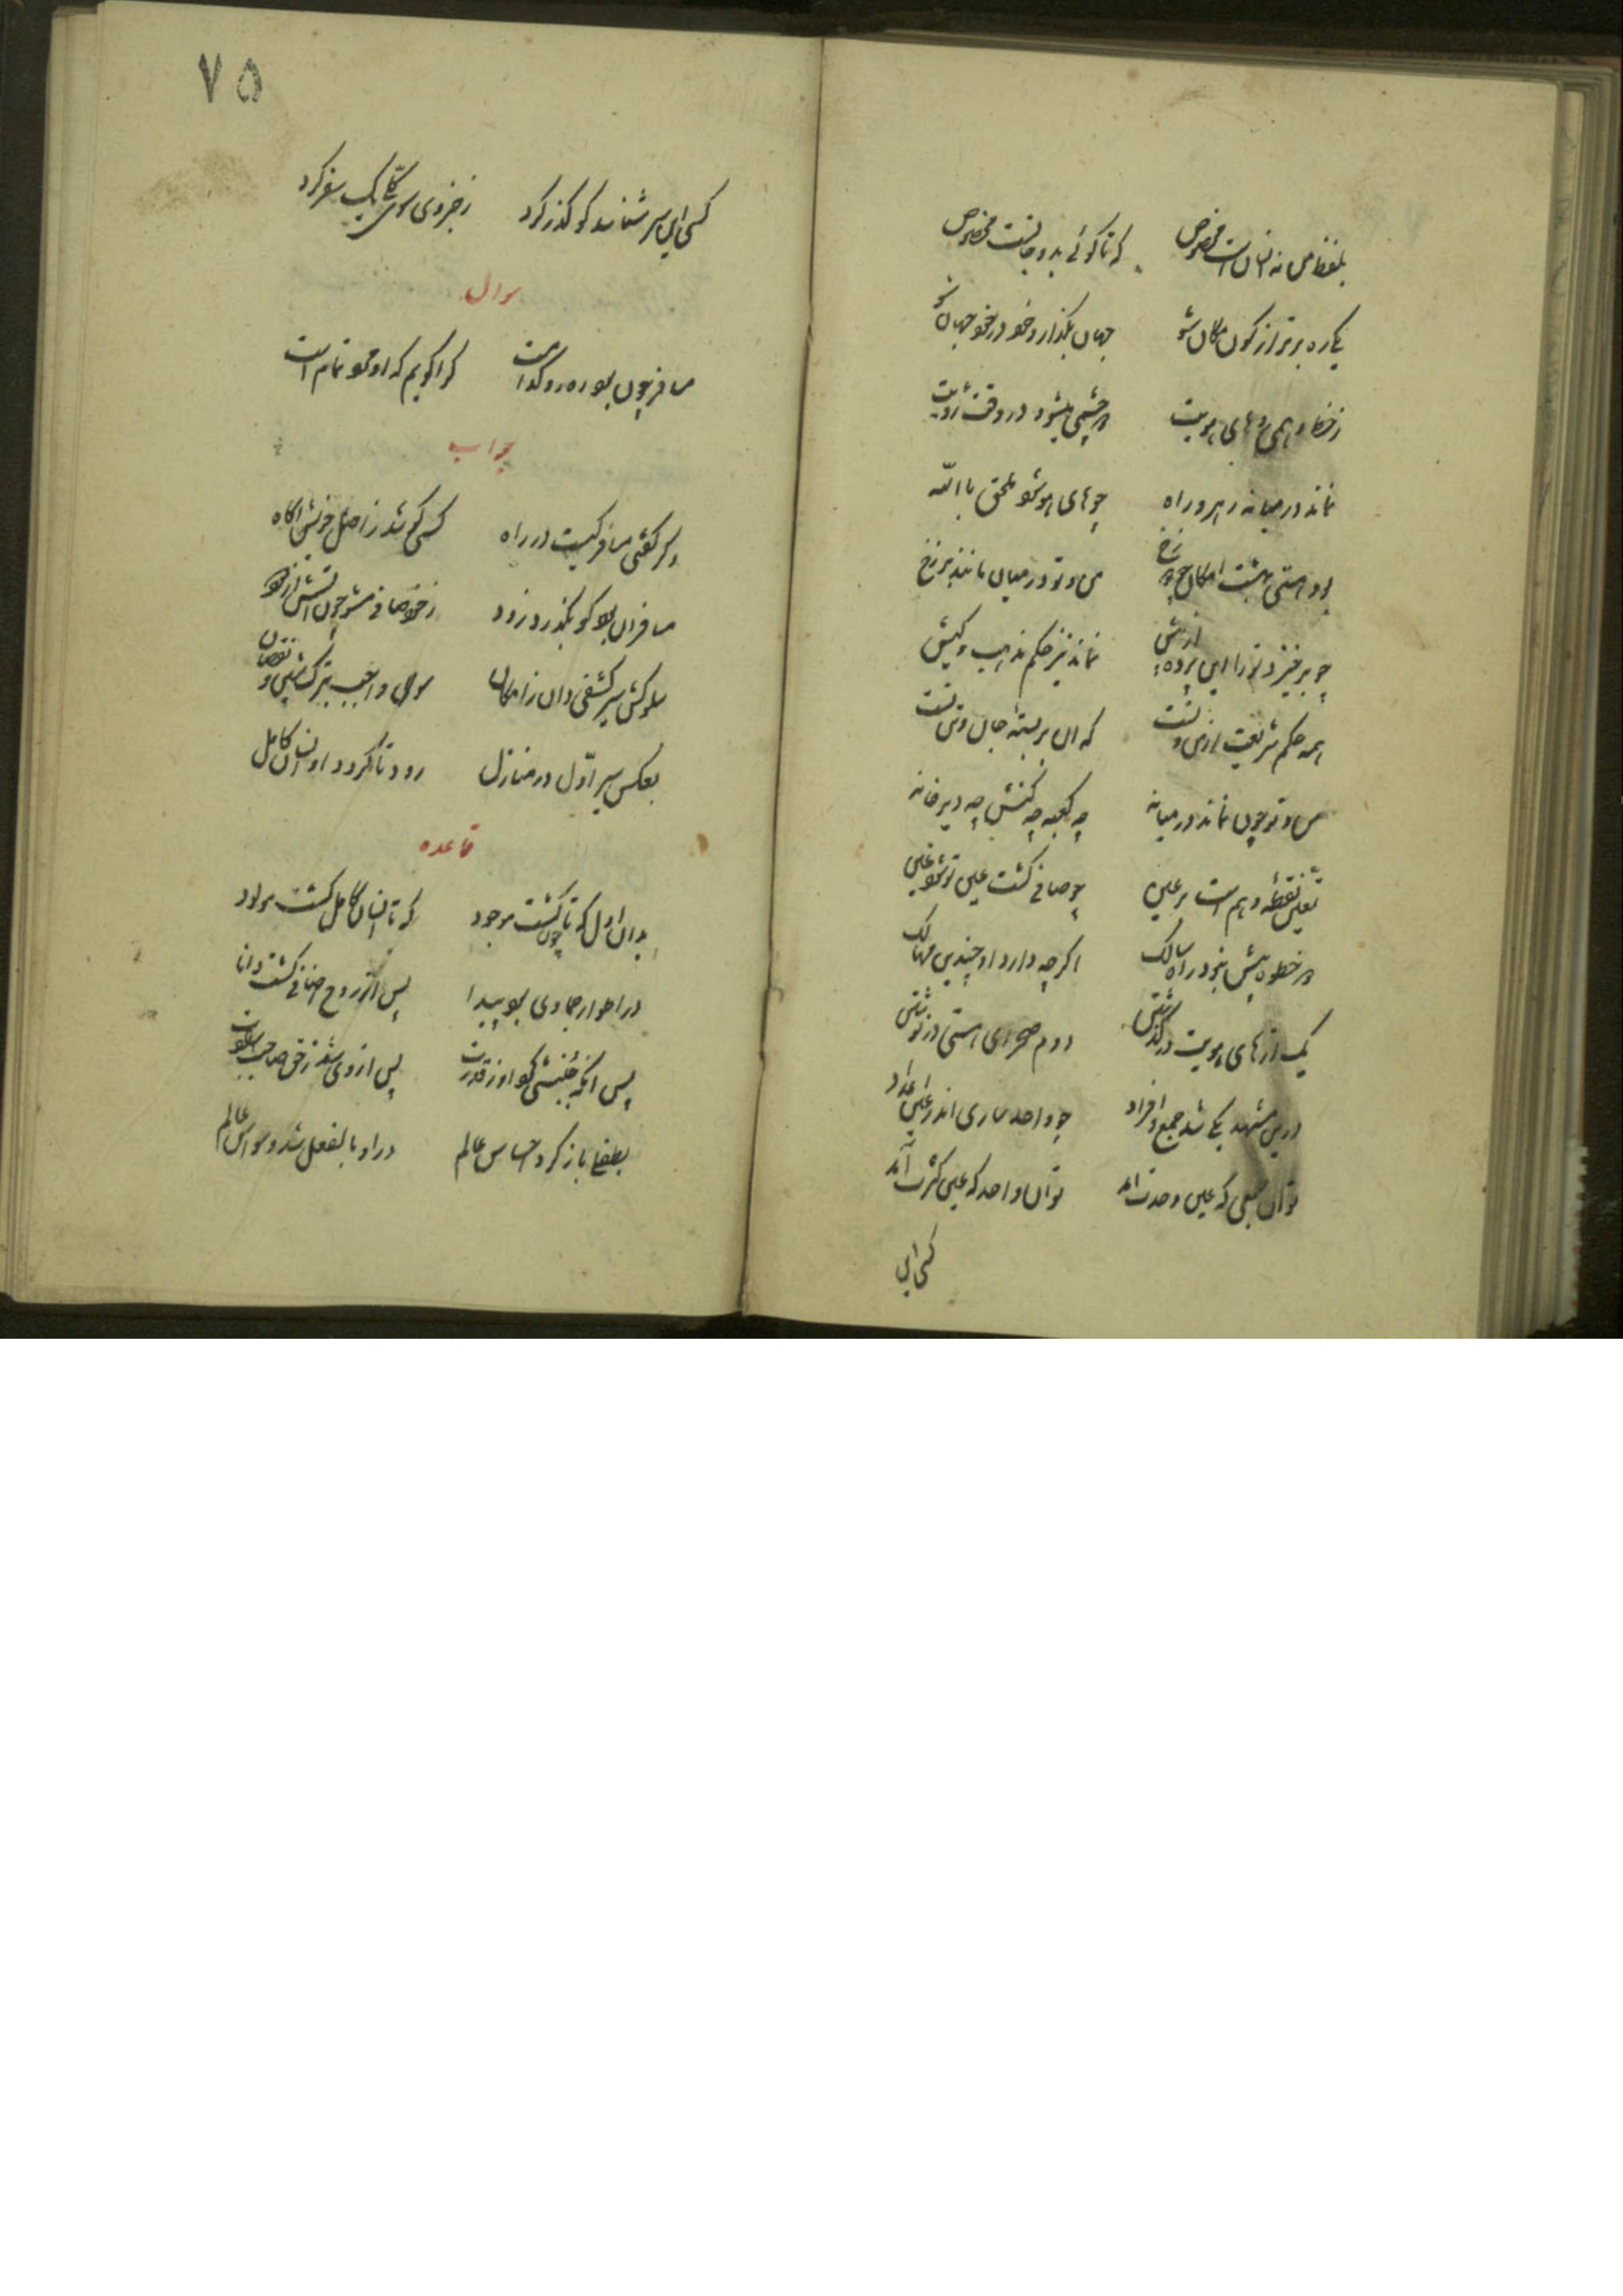 بلفظ من نه انسانست مخصوص که تا کوئی بدو جانست مخصوص
یکی ره برتر از کون مکان شو جهان بکذار و خود در خود جهان شو
ز خط وهمی های هویت دو چشمی میشود در وقت رویت
نماند در میانه رهرو راه چو های هو شود ملحق با الله
بود هستی بهشت امکان چو دوزخ من و تو در میان مانند برزخ
چو برخیزد تو را این پرده از پیش نماند نیز حکم مذهب و کیش
همه حکم شریعت از من و تست که آن بر بسته جان و تن تست
من و تو چون نماند در میانه چه کعبه چه کنش چه دیر خانه
تعین نقطه وهم است بر عین چو صافی کشت عین تو شود عین
دو خطوه بیش نبود راه سالک اکرچه دارد او چندین مهالک
یک از های هویت در کذشتن دوم صحرای هستی در نوشتن
درین مشهد یکی شد جمع و افراد چو واحد ساری اندر عین اعداد
تو آن جمعی که عین وحدت آمد تو آن واحد که عین کثرت آمد
کسی این
۷۵
کسی این سر شناسد کو کذر کرد ز جزوی سوی کلی یک سفر کرد
سوال
مسافر چون بود ره رو کدامست کرا کویم که او مرد تمام است
جواب
دکر کفتی مسافر کیست در راه کسی کو شد ز اصل خویش آکاه
مسافر آن بود کو بکذرد زود ز خود صافی شود چون آتش از دود
سلوکش سیر کشفی دان ز امکان سوی واجب بترک شین و نقصان
بعکس سیر اوّل در منازل رود تا کردد او انسان کامل
قاعده
بدان اول که تا چون کشت موجود که تا انسان کامل کشت مولود
در اطوار جمادی بود پیدا پس از روح اضافی کشت دانا
پس آنکه جنبشی کرد او ز قدرت پس از وی شد ز حق صاحب ارادت
بطفلی باز کرد احساس عالم درو بالفعل شد وسواس عالم